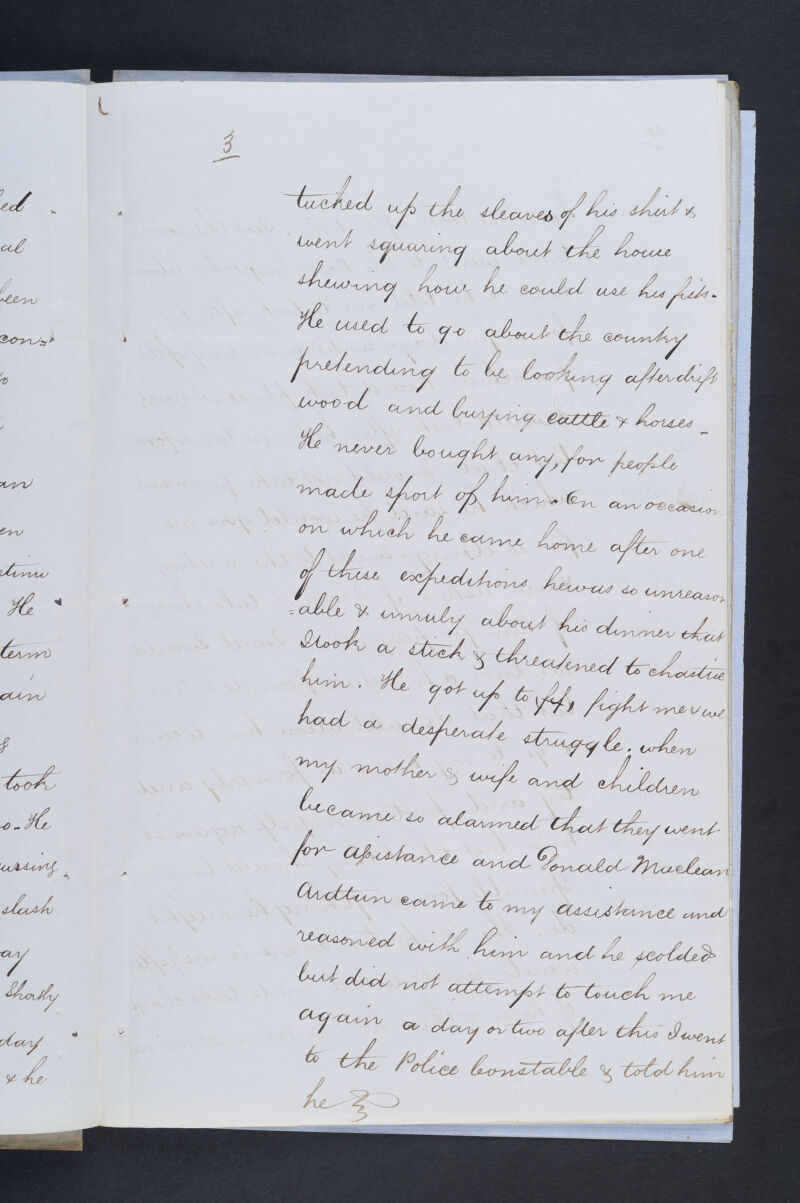 ed
al
been
cons
o
an
en
stinu
He
term
ain
g
took
o - He
ursing
slash
ay
Shortly
day
& he
3
tucked up the sleaves of his shirt &
went squaring about the house
shewing how he could use his fists -
He used to go about the country
pretending to be looking after drift
wood and burying cattle & horses -
He never bought any, for people
made sport of him - On an occasion
on which he came home after one
of these expeditions he was so unreason
=able & unruly about his dinner that
I took a stick & threatened to chastise
him. He got up to fight me & we
had a desperate struggle. when
my mother & wife and children
became so alarmed that they went
for assistance and Donald Maclean
Ardtun came to my assistance and
reasoned with him and he scolded
but did not attempt to touch me
again a day or two after this I went
to the Police Constable & told him
he